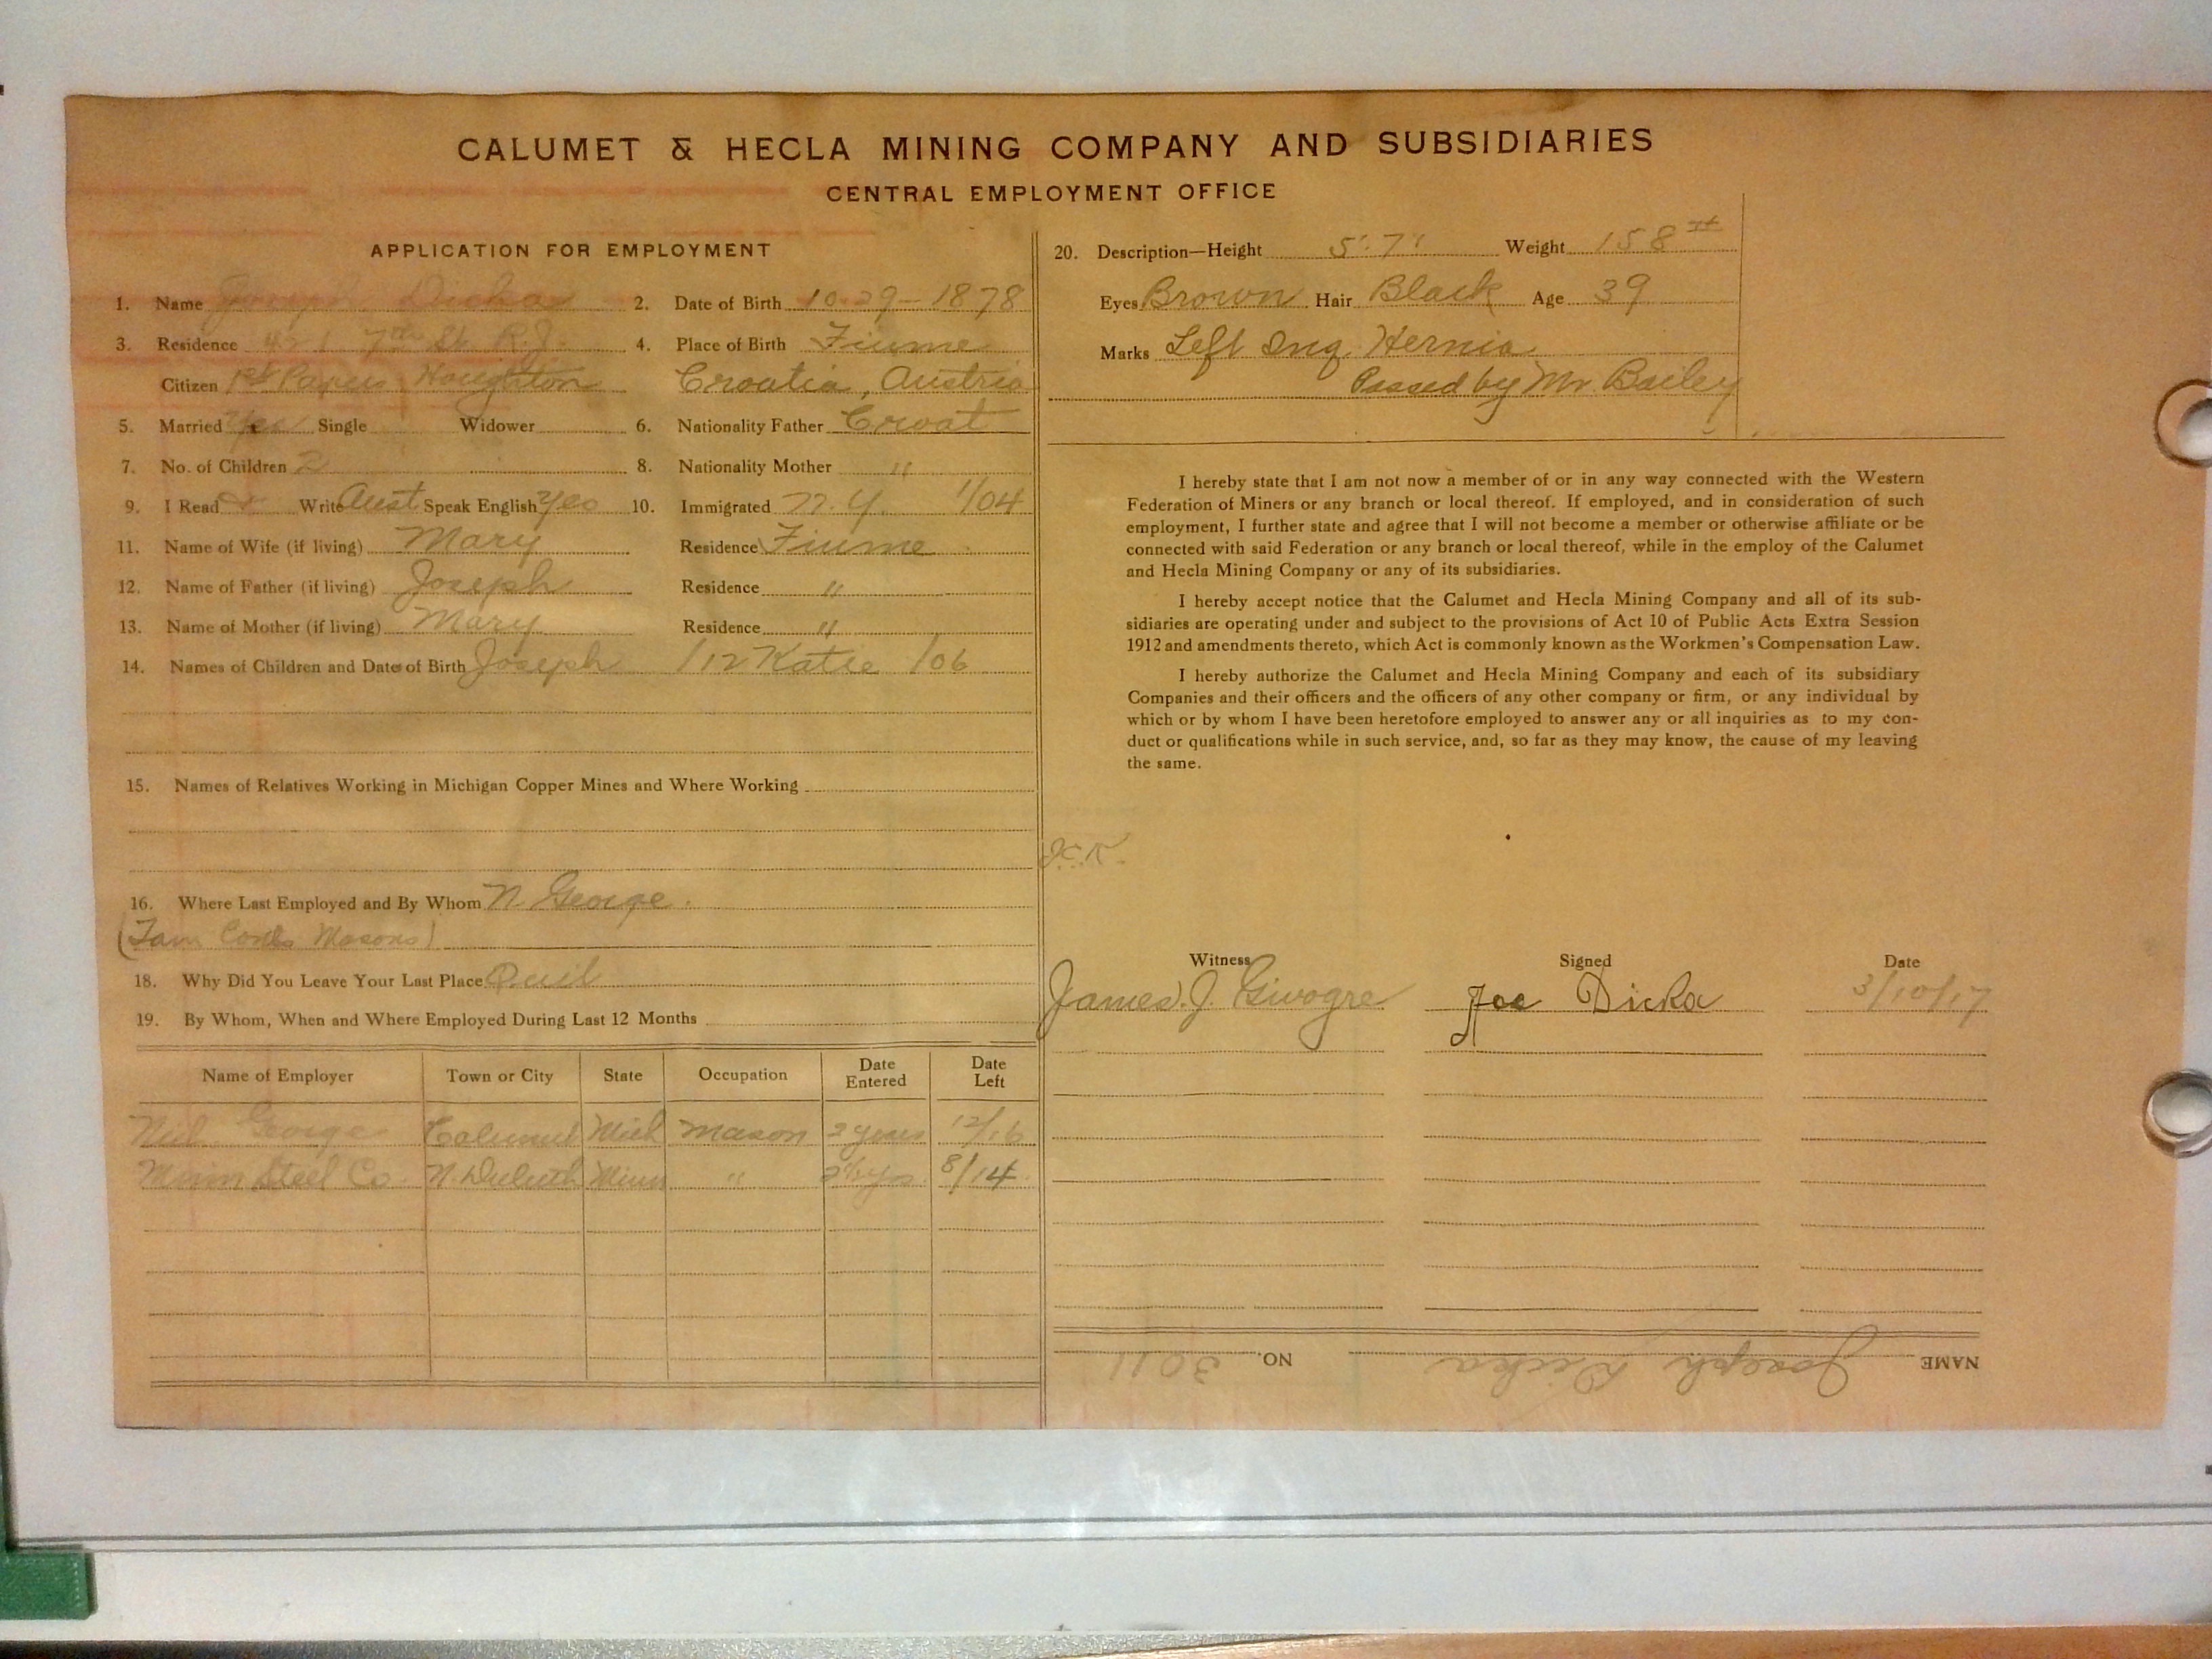 CALUMET & HECLA MINING COMPANY AND SUBSIDIARIES
CENTRAL EMPLOYMENT OFFICE
APPLICATION FOR EMPLOYMENT
1. Name Joseph Dicka 2. Date of Birth 10-29-1878
3. Residence 421 7th St. R.J. 4. Place of Birth Fiume
Citizen 1st Papers Houghton Croatia, Austria
5. Married Yes Single Widower 6. Nationality Father Croat
7. No. of Children 2 8. Nationality Mother "
9. I Read & Write Aust Speak English Yes 10. Immigrated N.Y. 1/04
11. Name of Wife (if living) Mary Residence Fiume
12. Name of Father (if living) Joseph Residence "
13. Name of Mother (if living) Mary Residence "
14. Names of Children and Dates of Birth Joseph /12 Katie /06
15. Names of Relatives Working in Michigan Copper Mines and Where Working
16. Where Last Employed and By Whom N. George.
(Tam Masons)
18. Why Did You Leave Your Last Place Quit
19. By Whom, When and Where Employed During Last 12 Months
Name of Employer Town or City State Occupation Date Entered Date Left
George Calumet Mich Mason 2 years 12/16
Minn Steel Co. N. Duluth Minn " 2½ yrs. 8/14
20. Description—Height 5'.7" Weight 158#
Eyes Brown Hair Black Age 39
Marks Left Ing. Hernia
Passed by Mr. Bailey
I hereby state that I am not now a member of or in any way connected with the Western
Federation of Miners or any branch or local thereof. If employed, and in consideration of such
employment, I further state and agree that I will not become a member or otherwise affiliate or be
connected with said Federation or any branch or local thereof, while in the employ of the Calumet
and Hecla Mining Company or any of its subsidiaries.
I hereby accept notice that the Calumet and Hecla Mining Company and all of its sub-
sidiaries are operating under and subject to the provisions of Act 10 of Public Acts Extra Session
1912 and amendments thereto, which Act is commonly known as the Workmen's Compensation Law.
I hereby authorize the Calumet and Hecla Mining Company and each of its subsidiary
Companies and their officers and the officers of any other company or firm, or any individual by
which or by whom I have been heretofore employed to answer any or all inquiries as to my con-
duct or qualifications while in such service, and, so far as they may know, the cause of my leaving
the same.
Witness Signed Date
James. J. Givogre Joe Dicka 3/10/17
NAME Joseph Dicka NO. 3011